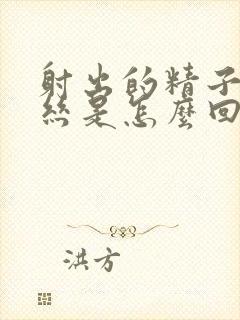 射出的精子
絲是怎麼回
洪方